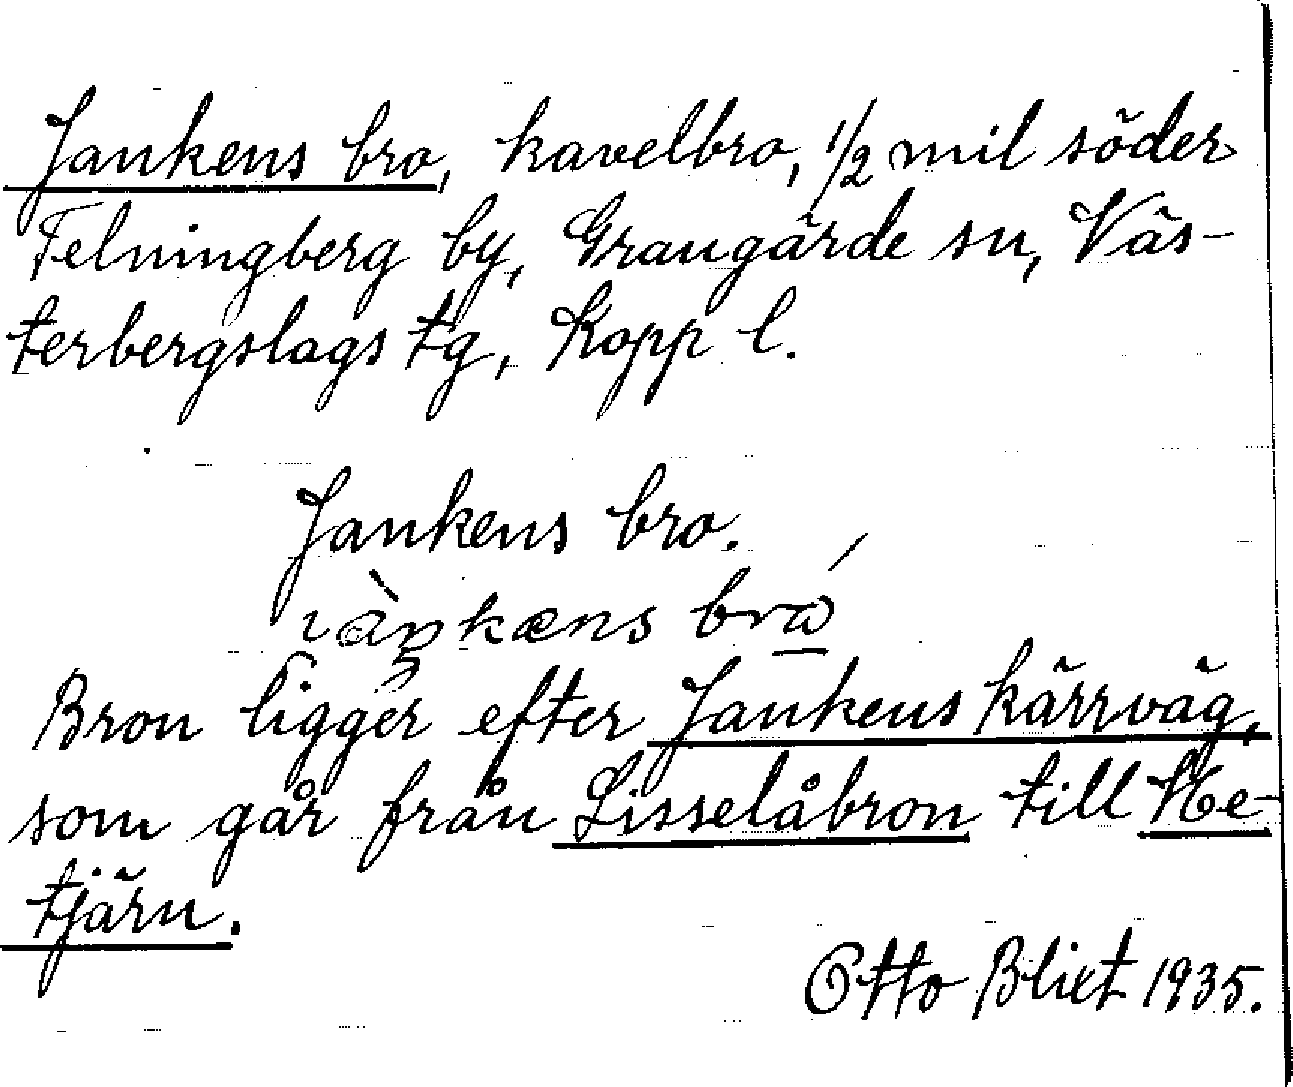 Jankens bro, kavelbro, 1/2 mil söder
Felningberg by, Grangärde sn, Väs-
terbergslags tg, Kopp l.
Jankens bro.
bro
Bron ligger efter Jankens kärrväg,
som går från Lisselåbron till He-
tjärn.
Otto Blixt 1935.